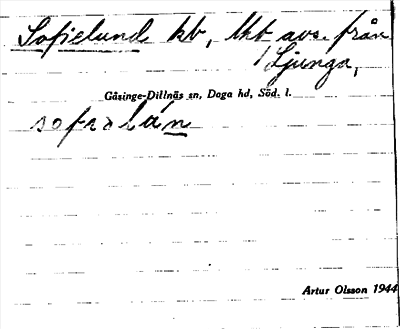 Sofielund kb, lht avs. från
Ljunga,
Gåsinge-Dillnäs sn, Daga hd, Söd. l.
Artur Olsson 1944